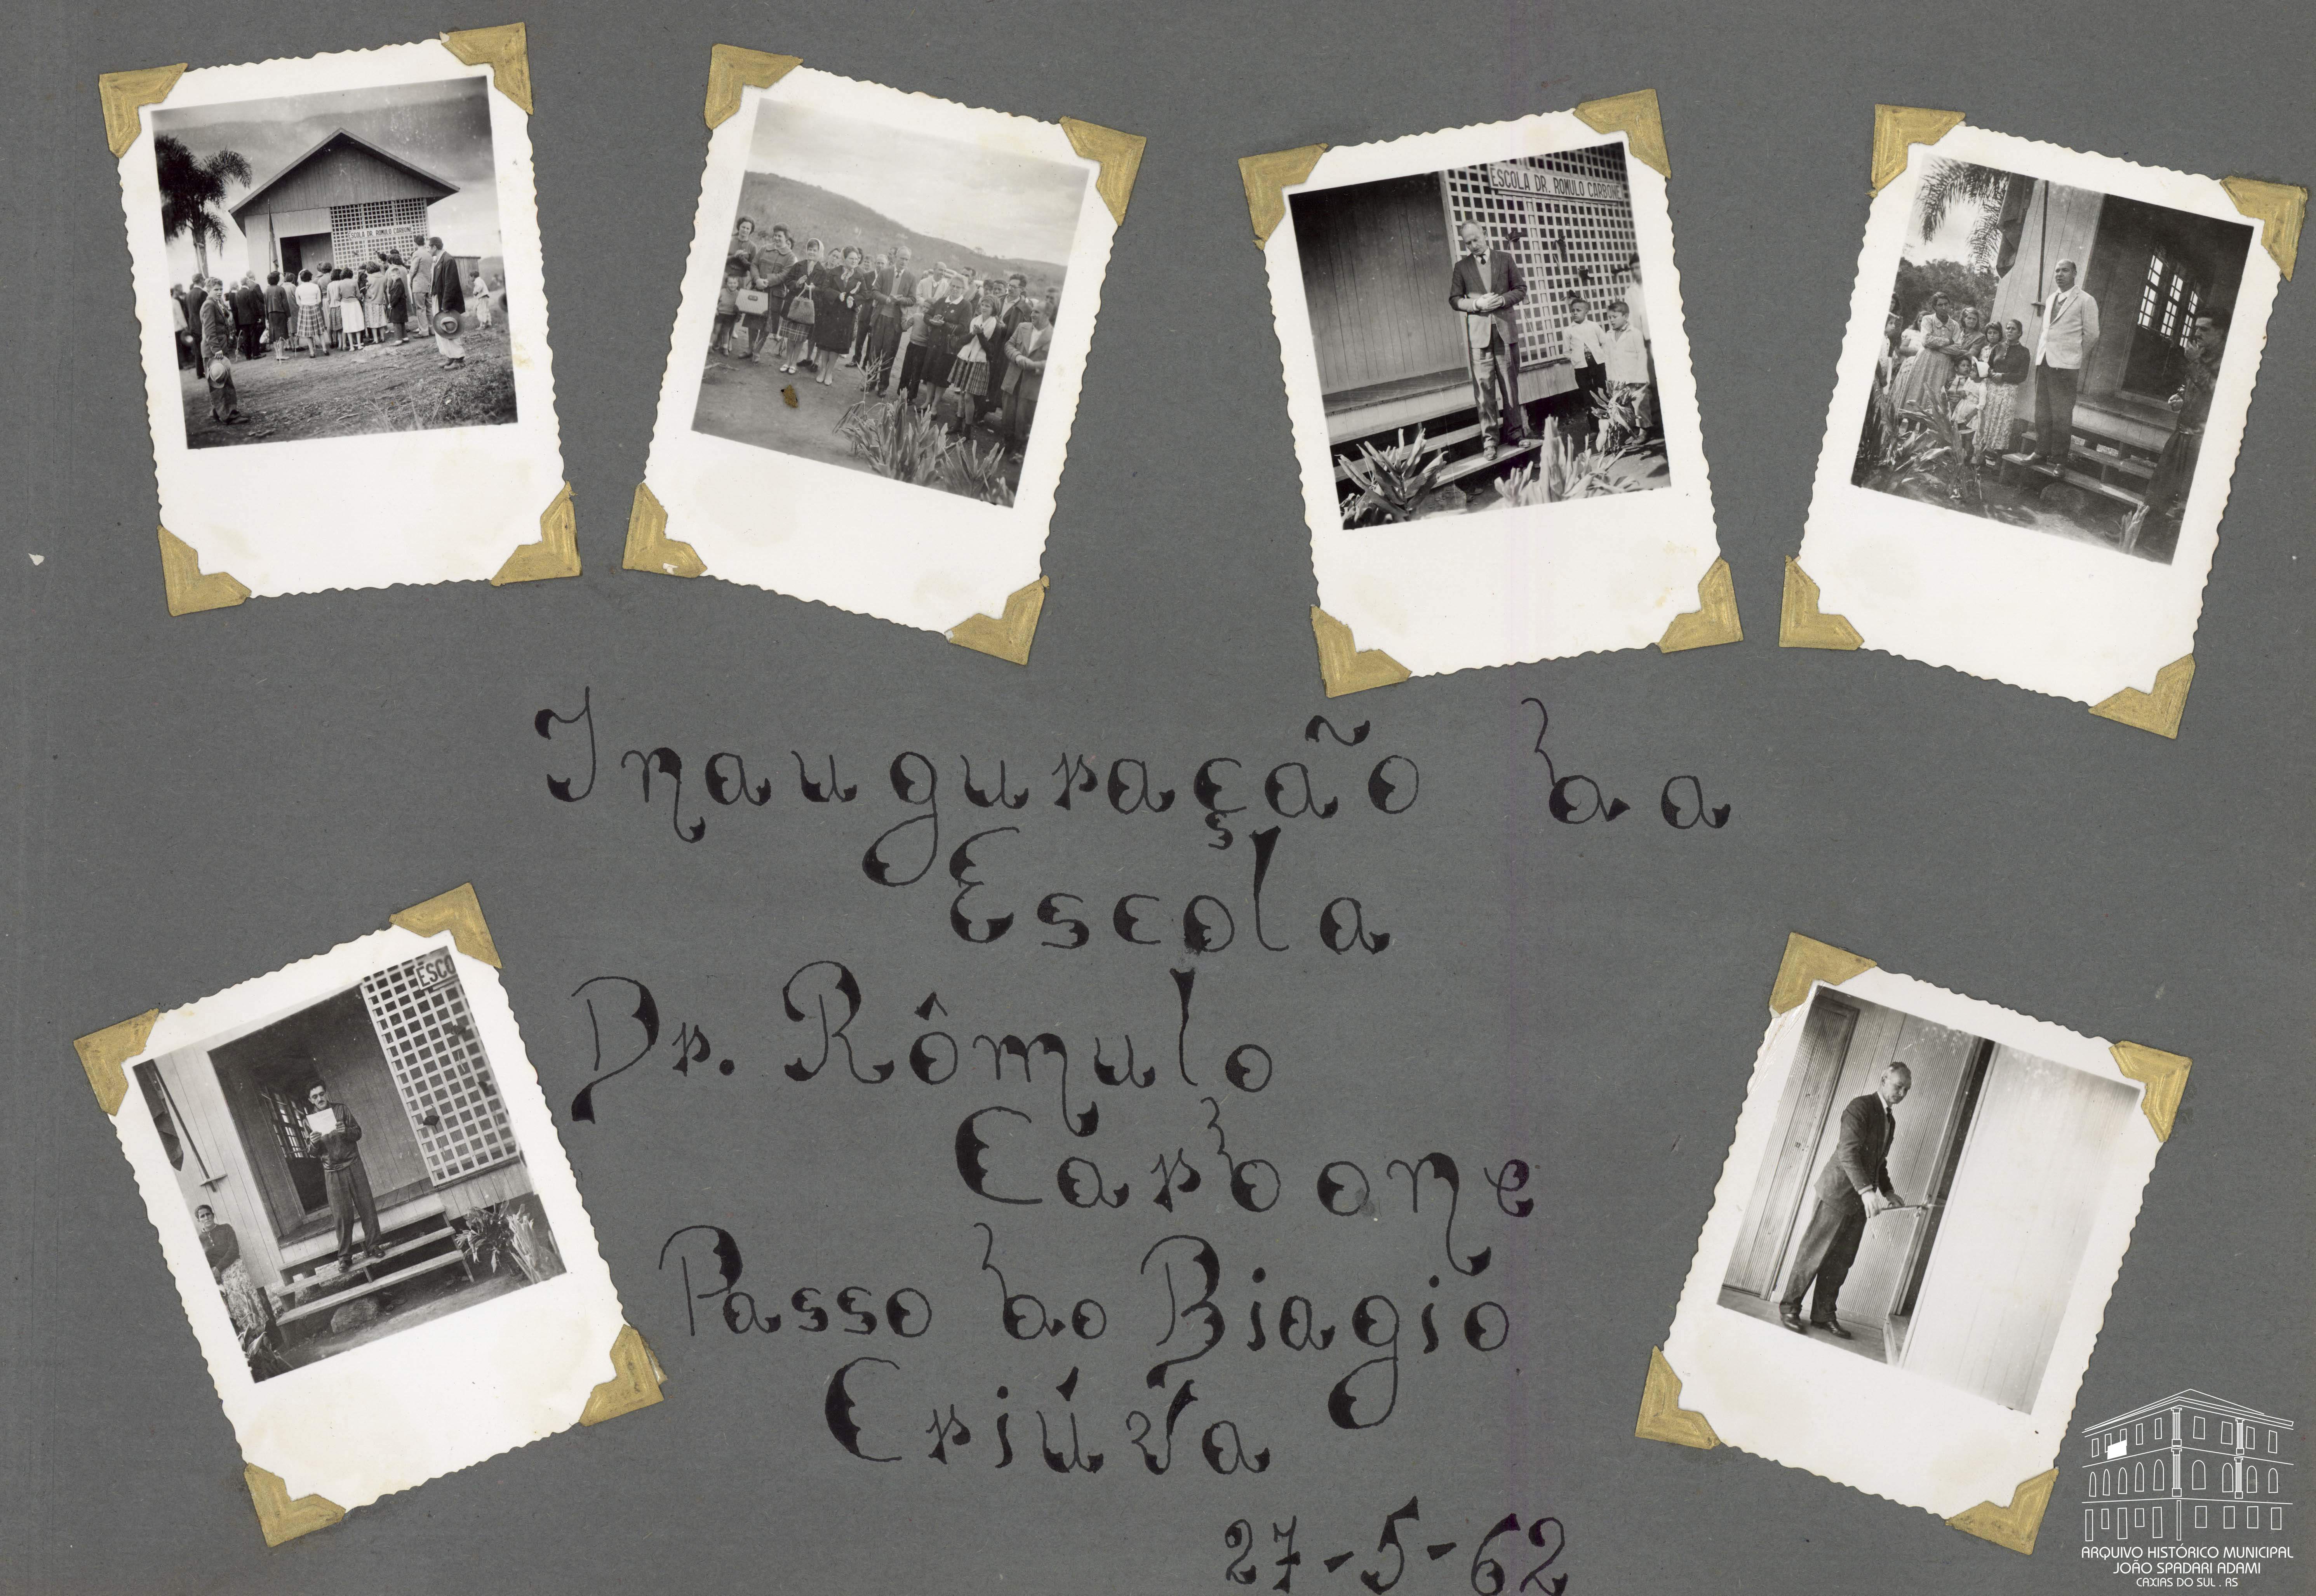 ESCOLA DR. ROMULO CARBONE
ESCOLA DR. ROMULO CARBONE
Inauguração da
Escola
Dr. Rômulo
Carbone
Passo do Biagio
Criúva
27-5-62
ESCO
ARQUIVO HISTÓRICO MUNICIPAL
JOÃO SPADARI ADAMI
CAXIAS DO SUL . RS